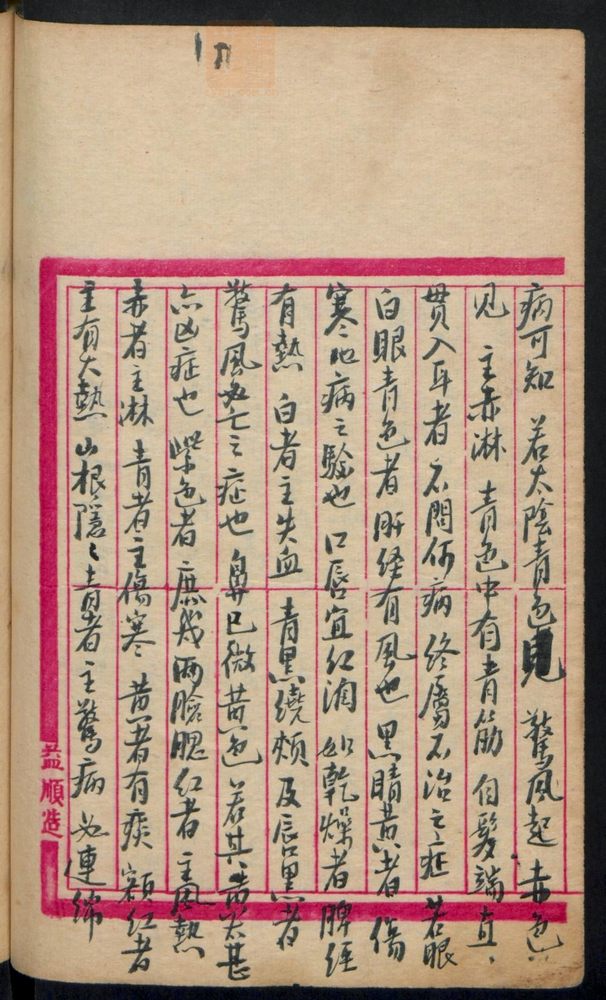 病可知 若太陰青色見 驚風起 赤色
见 主赤淋 青色中有青筋 自髮端直
貫入耳者 不問何病 終屬不治之症 若眼
白眼青色者 肝经有風也 黑睛黄者 傷
寒之病之驗也 口唇宜红润 如乾燥者 脾经
有熱 白者主失血 青黑繞頰 及唇黑者
驚風必亡之症也 鼻色微黄色 若其黄太甚
亦凶症也 紫色者 庶幾 两臉腮红者 主風熱
赤者主淋 青者主傷寒 黄者有痰 額红者
主有大熱 山根隱々青者 主驚病 必連绵
益順造